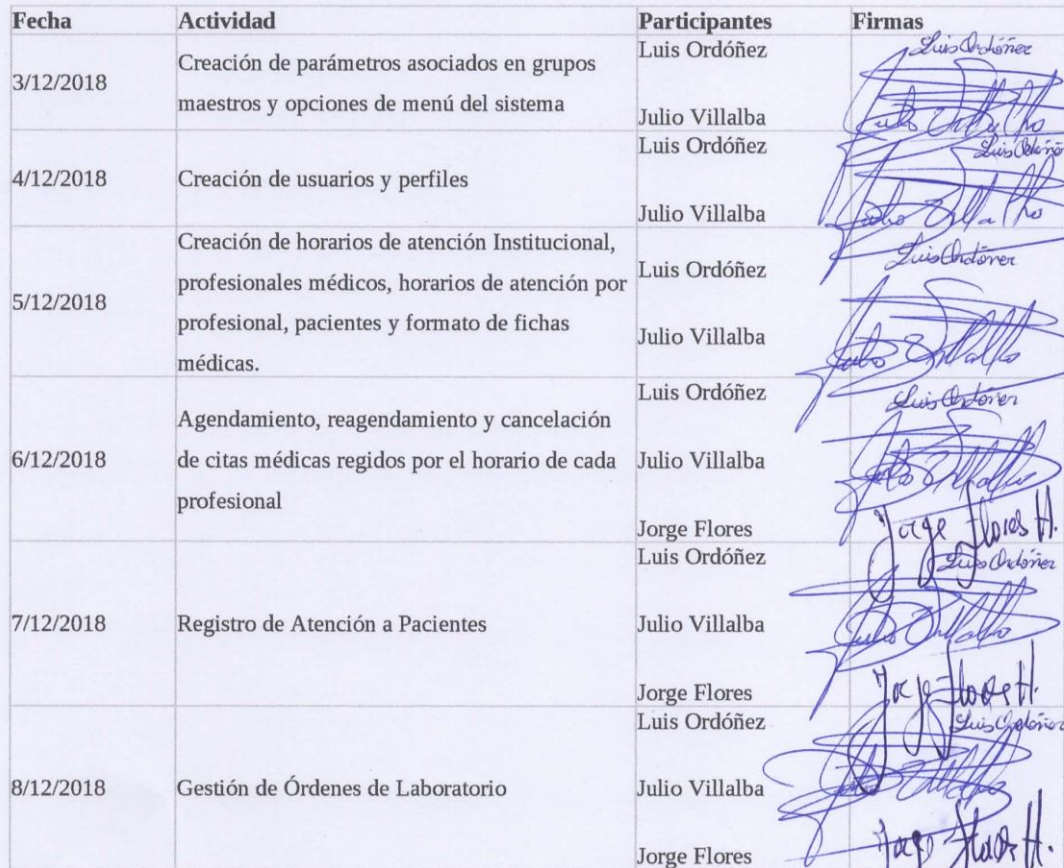 Fecha Actividad Participantes Firmas
3/12/2018
Creación de parámetros asociados en grupos
maestros y opciones de menú del sistema
Luis Ordóñez
Julio Villalba
Luis Ordóñez
Julio Villalba
4/12/2018
Creación de usuarios y perfiles
Luis Ordóñez
Julio Villalba
Luis Ordóñez
Julio Villalba
5/12/2018
Creación de horarios de atención Institucional,
profesionales médicos, horarios de atención por
profesional, pacientes y formato de fichas
médicas.
Luis Ordóñez
Julio Villalba
Luis Ordóñez
Julio Villalba
6/12/2018
Agendamiento, reagendamiento y cancelación
de citas médicas regidos por el horario de cada
profesional
Luis Ordóñez
Julio Villalba
Jorge Flores
Luis Ordóñez
Julio Villalba
Jorge Flores H.
7/12/2018
Registro de Atención a Pacientes
Luis Ordóñez
Julio Villalba
Jorge Flores
Luis Ordóñez
Julio Villalba
Jorge Flores H.
8/12/2018
Gestión de Órdenes de Laboratorio
Luis Ordóñez
Julio Villalba
Jorge Flores
Luis Ordóñez
Julio Villalba
Jorge Flores H.